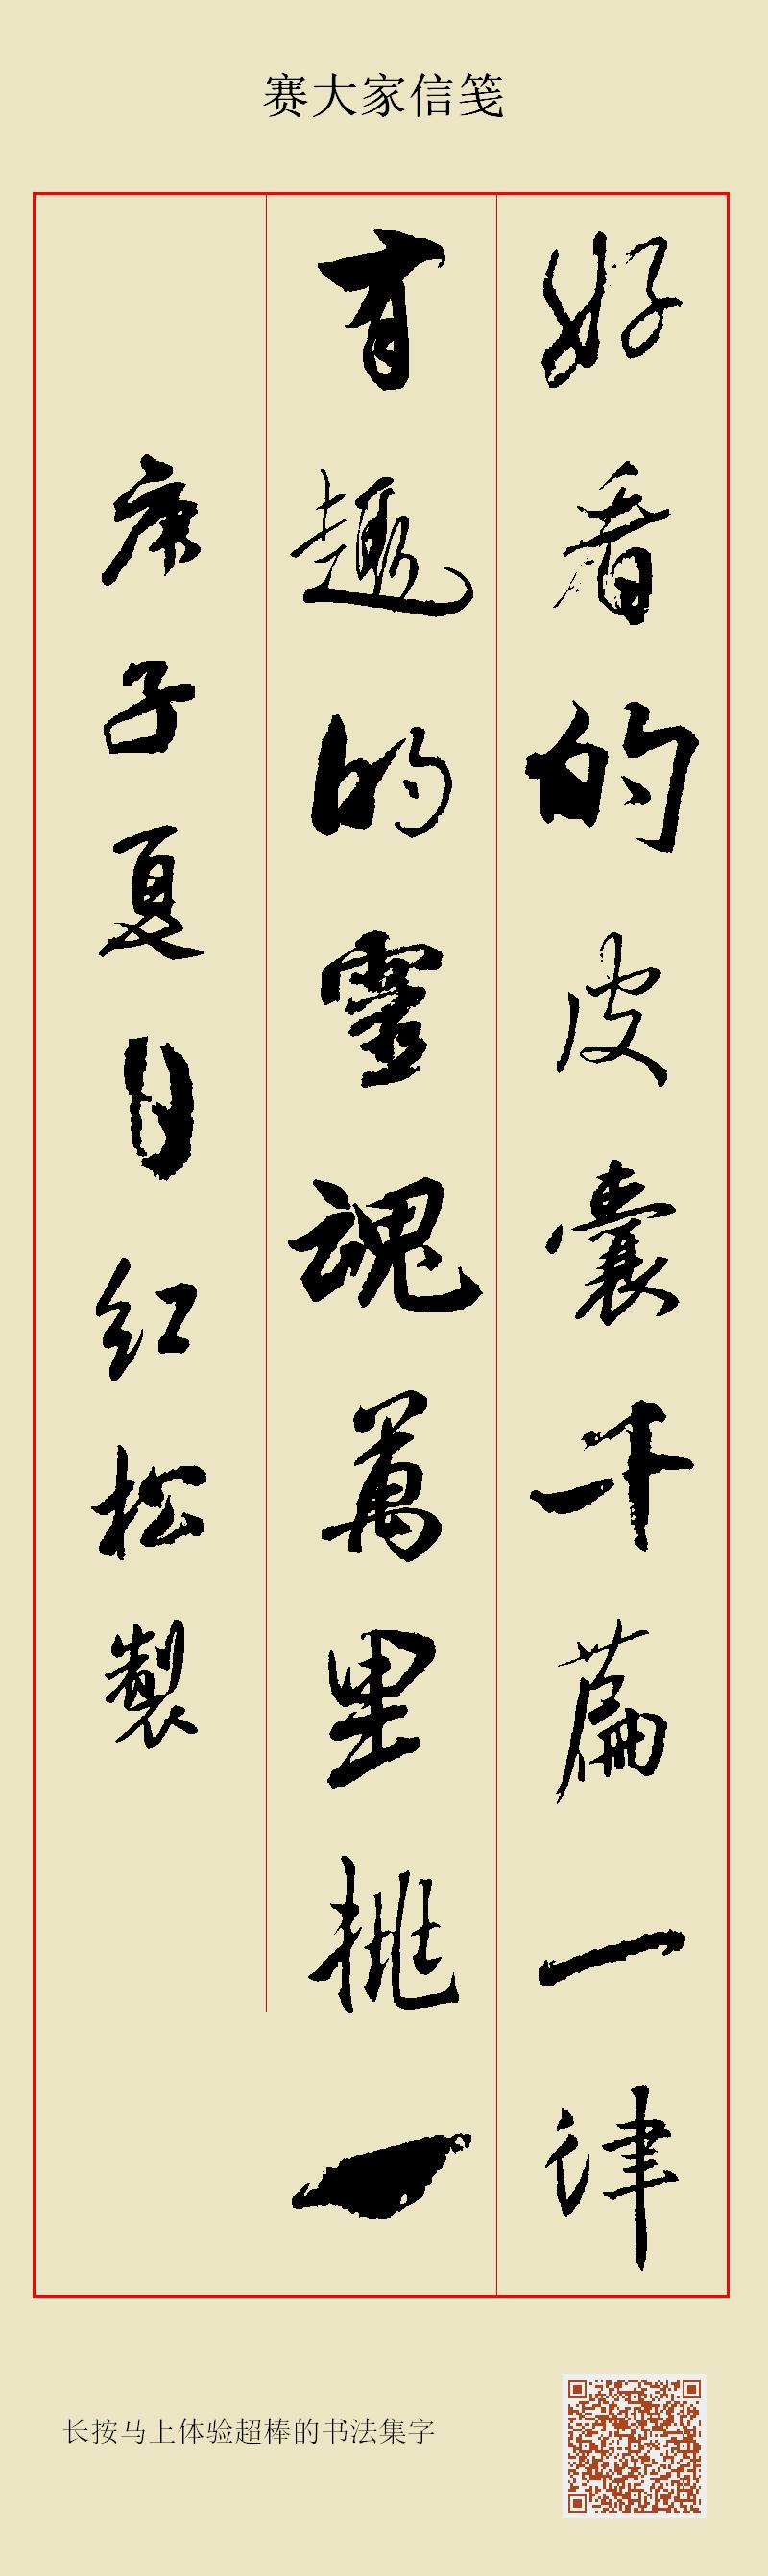 赛大家信笺
好看的皮囊千篇一律
有趣的靈魂萬里挑一
庚子夏日红松製
长按马上体验超棒的书法集字